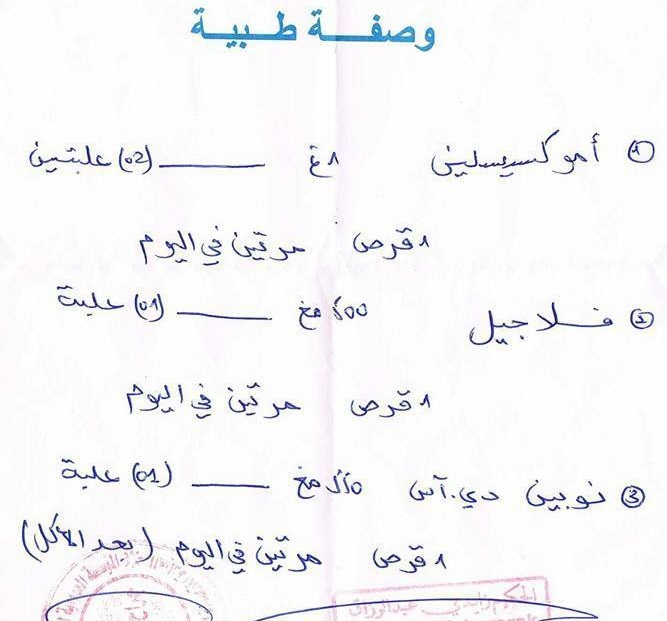 وصفة طبية
① أموكسيسلين 1غ ____ (02) علبتين
1 قرص مرتين في اليوم
② فلاجيل 500 مغ ____ (01) علبة
1 قرص مرتين في اليوم
③ نوبين دي.آس 550 مغ ____ (01) علبة
1 قرص مرتين في اليوم (بعد الأكل)